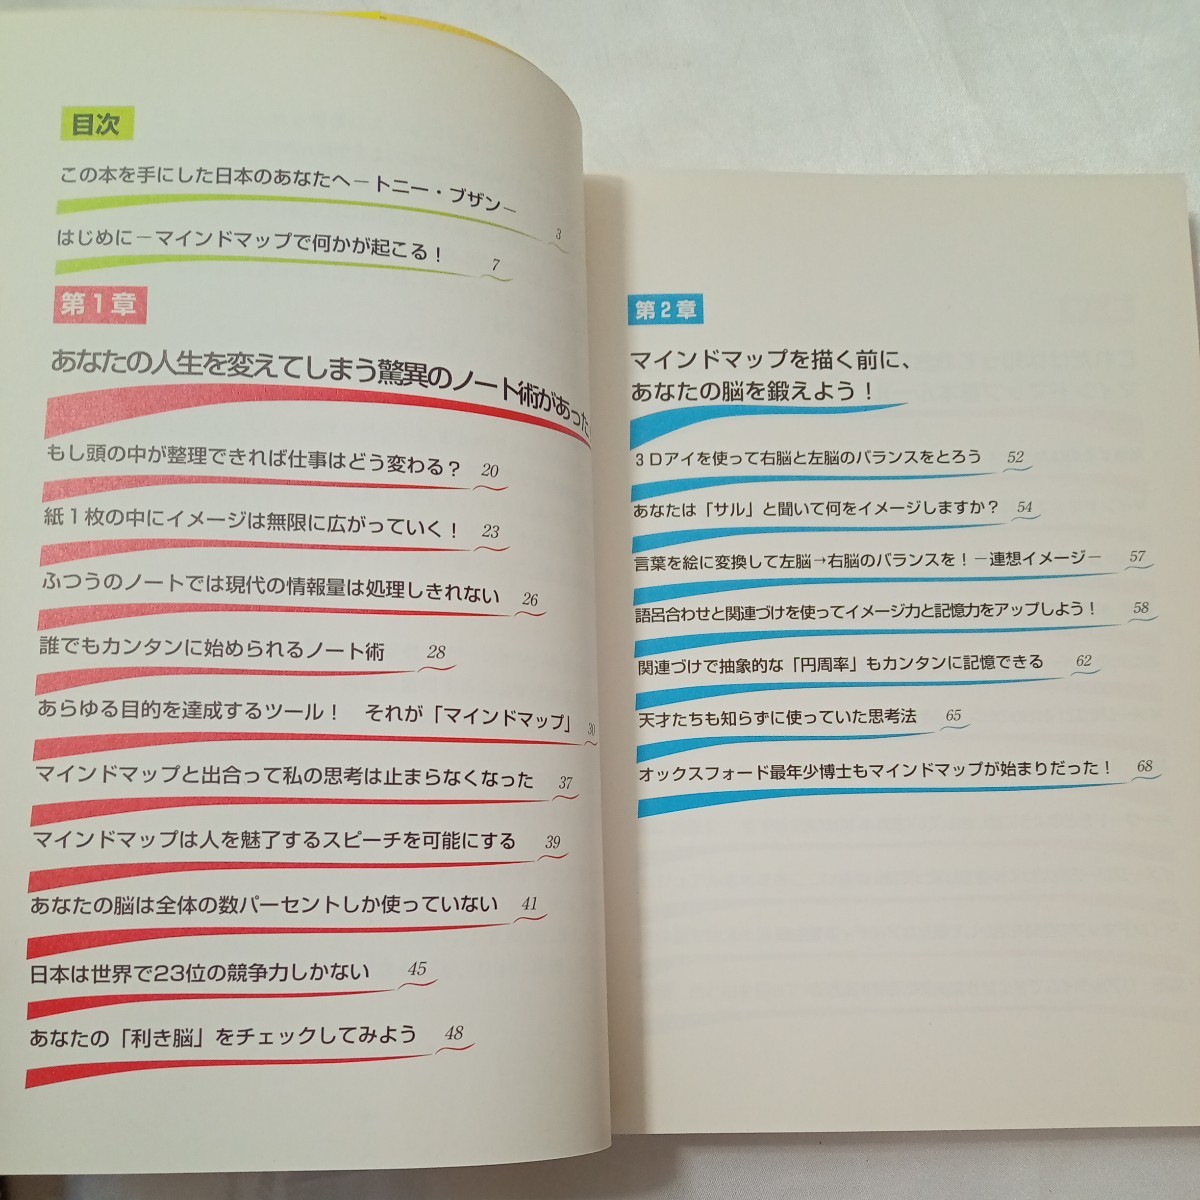 目次
この本を手にした日本のあなたへ－トニー・ブザン－ 3
はじめに－マインドマップで何かが起こる！ 7
第1章
あなたの人生を変えてしまう驚異のノート術があった
もし頭の中が整理できれば仕事はどう変わる？ 20
紙1枚の中にイメージは無限に広がっていく！ 23
ふつうのノートでは現代の情報量は処理しきれない 26
誰でもカンタンに始められるノート術 28
あらゆる目的を達成するツール！　それが「マインドマップ」 30
マインドマップと出合って私の思考は止まらなくなった 37
マインドマップは人を魅了するスピーチを可能にする 39
あなたの脳は全体の数パーセントしか使っていない 41
日本は世界で23位の競争力しかない 45
あなたの「利き脳」をチェックしてみよう 48
第2章
マインドマップを描く前に、
あなたの脳を鍛えよう！
3Dアイを使って右脳と左脳のバランスをとろう 52
あなたは「サル」と聞いて何をイメージしますか？ 54
言葉を絵に変換して左脳→右脳のバランスを！－連想イメージ－ 57
語呂合わせと関連づけを使ってイメージ力と記憶力をアップしよう！ 58
関連づけで抽象的な「円周率」もカンタンに記憶できる 62
天才たちも知らずに使っていた思考法 65
オックスフォード最年少博士もマインドマップが始まりだった！ 68